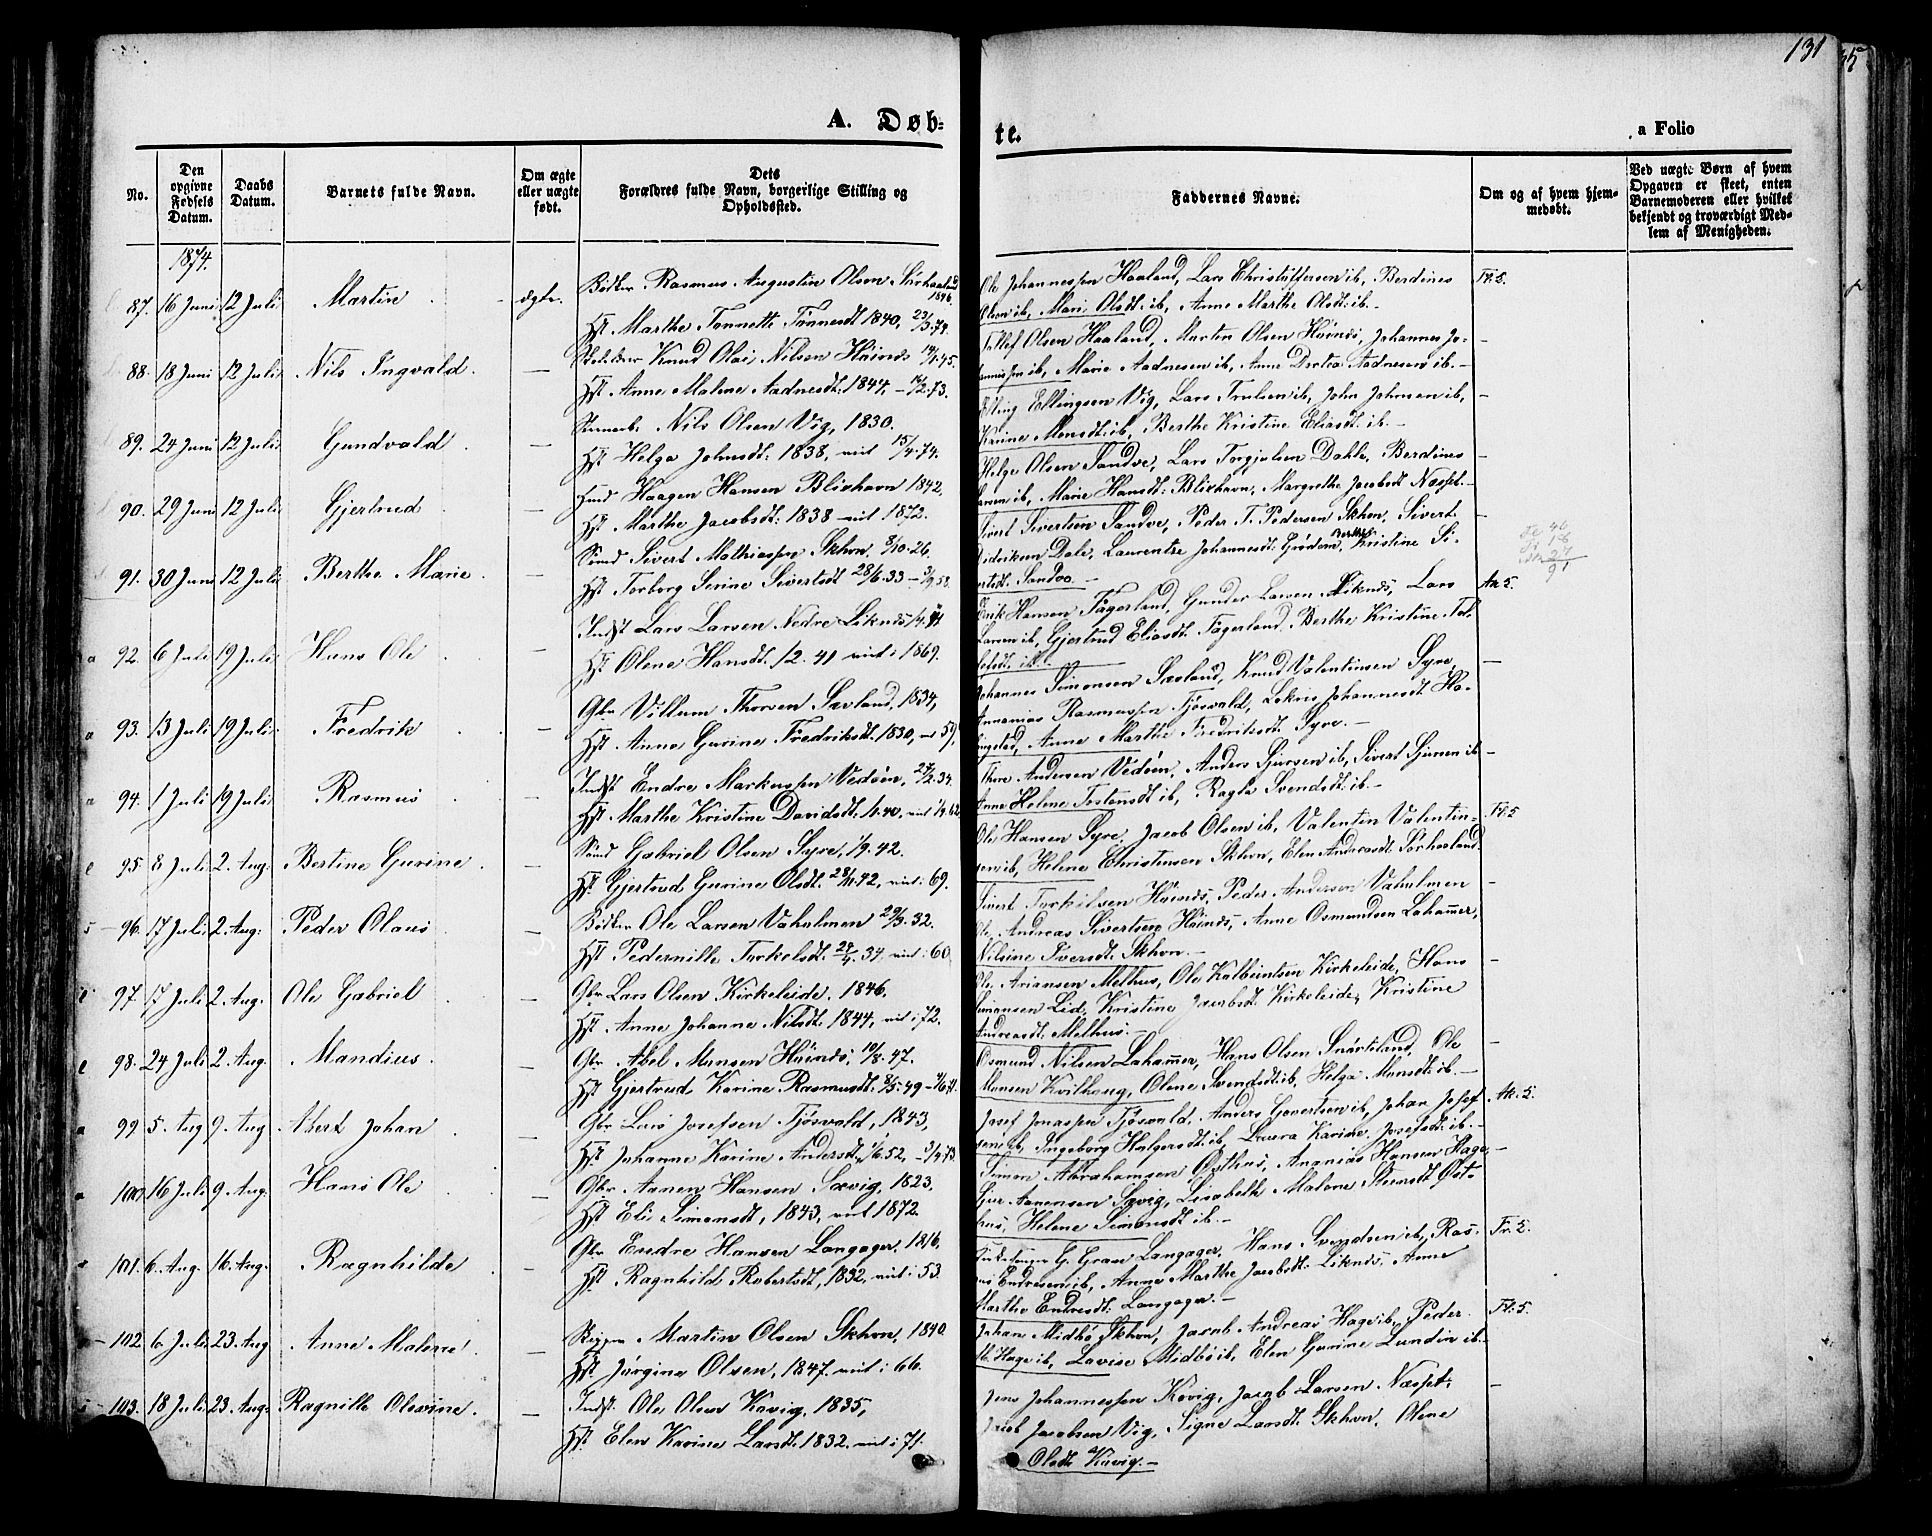 131
A. Døb-
te.
a Folio
No.
Den opgivne Fødsels Datum.
Daabs Datum.
Barnets fulde Navn.
Om ægte eller uægte født.
Dets Forældres fulde Navn, borgerlige Stilling og Opholdssted.
Faddernes Navne.
Om og af hvem hjemmedøbt.
Ved uægte Børn af hvem Opgaven er skeet, enten Barnemoderen eller hvilket bekjendt og troværdigt Medlem af Menigheden.
1874.
87. 16 Juni 12 Juli Martin ægte. Bødker Rasmus Augustin Olsen Sörhaaland 1846.
Hst Marthe Tonnette Tönnesdt 1840, 23/3.74.
Ole Johannessen Haaland, Lars Christoffersen ib, Berdines
Olsen ib, Mari Olsdt: ib, Anne Marthe Olsdt: ib. -
88. 18 Juni 12 Juli Nils Ingvald. — Knud Olai Nilsen Höinæs
Hst Anne Malene Aadnesdt. 1844,
Olsen Haaland, Martin Olsen Höinæs, Johannes Jo-
ib, Marie Aadnesen ib, Anne Dortea Aadnesen ib. -
89. 24 Juni 12 Juli Gundvald — Nils Olsen Vig, 1830.
Hst Helga Johnsdt: 1838, viet 15/4.74.
Elling Ellingsen Vig, Lars Trulsen ib, John Johnsen ib,
Karine Monsdt: ib, Berthe Kristine Eliasdt ib. -
90. 29 Juni 12 Juli Gjertrud — Haagen Hansen Blixhavn 1842,
Hst Marthe Jacobsdt: 1838 - viet 1872.
Helge Olsen Sandve, Lars Torgjulsen Dahle, Berdines
Larsen ib, Marie Hansdt: Blixhavn, Margrethe Jacobsdt Næsset. -
91. 30 Juni 12 Juli Berthe Marie. — Sivert Mathiassen Skhvn. 8/10.26.
Hst Torborg Serine Sivertsdt 28/6.33 - 3/9.58.
Sivert Sivertsen Sandve, Peder T. Pedersen Skhvn, Sivert
Didriksen Dale, Laurentze Johannesdt. Grödem, Berthe Kristine Si-
vertsdt. Sandve. -
92. 6 Juli 19 Juli Hans Ole — Indst Lars Larsen Nedre Liknæs
Hst. Olene Hansdt. 12.41 viet i 1869.
Erik Hansen Fagerland, Gunder Larsen Liknæs, Lars
Larsen ib, Gjertrud Eliasdt. Fagerland, Berthe Kristine
93. 13 Juli 19 Juli Fredrik — Gbr Villum Thorsen Sævland, 1834,
Hst. Anne Gurine Fredriksdt. 1830, 59,
Johannes Simonsen Sævland, Knud Valentinsen Syre,
Annanias Rasmussen Tjösvold, Johannesdt
Anne Marthe Fredriksdt. Syre. -
94. 1 Juli 19 Juli Rasmus — Indst Endre Markussen Vedöen,
Hst Marthe Kristine Davidsdt.
Thore Andersen Vedöen, Anders Gjersen ib, Sivert Gjersen ib
Anne Helene Tostensdt ib, Ragla Svendsdt: ib. -
95. 8 Juli 2. Aug: Bertine Gurine. — Gabriel Olsen Syre, 1/9.42.
Hst. Gjertrud Gurine Olsdt. 28/11.42, viet i 69.
Ole Hansen Syre, Jacob Olsen ib, Valentin Valentin-
sen ib, Helene Christensen Skhvn, Elen Andreasdt Sörhaaland.
96. 17 Juli 2. Aug: Peder Olaus. — Bödker Ole Larsen Vaholmen 29/3.32.
Hst Pedernille Torkelsdt. viet i 60
Sivert Torkilsen Höinæs, Peder Andersen Vaholmen
Andreas Sivertsen Höinæs, Anne Osmundsen Lahammer,
Nilsine Iversdt. Skhvn. -
97. 17 Juli 2. Aug. Ole Gabriel — Gbr Lars Olsen Kirkeleide, 1846,
Hst. Anne Johanne Nilsdt. 1844, viet i 72.
Ole Ariansen Melhus, Ole Kolbeintsen Kirkeleide, Hans
Simonsen Lid, Kristine Jacobsdt. Kirkeleide, Kristine
Andreasdt. Melhus. -
98. 24 Juli 2. Aug. Mandius. — Gbr. Abel Munsen Höinæs, 10/8.47.
Hst Gjertrud Karine Rasmusdt.
Osmund Nilsen Lahammer, Hans Olsen Snörteland, Ole
Monsen Kvilhaug, Olene Svendsdt: ib, Helga Monsdt: ib. -
99 5. Aug 9. Aug Abert Johan — Gbr Lars Josefsen Tjösvold, 1843,
Hst. Johanne Karine Andersdt,
Josef Jonassen Tjösvold, Anders Govertsen ib, Johan Josef-
sen ib, Ingeborg Holgersdt: ib, Laura Karine Josefsdt: ib. -
100. 16 Juli 9. Aug. Hans Ole. — Gbr. Aanen Hansen Sævig, 1823,
Hst Eli Simonsdt, 1843, viet 1872.
Simon Abrahamsen Östhus, Ananias Hansen Hage,
Gjer Aanensen Sævig, Lisabeth Malene Steensdt Öst-
hus, Helene Simonsdt ib. -
101. 6. Aug. 16. Aug. Ragnhilde — Gbr Endre Hansen Langager, 1816,
Hst. Ragnhild Robertsdt, 1832, viet i 53.
G. Grave Langager, Hans Svendsen ib, Ras-
mus Endresen ib, Anne Marthe Jacobsdt. Liknæs, Anne
Marthe Endresdt: Langager. -
102. 6. Juli 23. Aug Anne Malene. — Skipper Martin Olsen Skhvn, 1840.
Hst. Jörgine Olsen, 1847. viet i 66.
Johan Midbö Skhvn, Jacob Andreas Hage ib, Peder
Hage ib, Lovise Midbö ib, Elen Gurine Lundin ib. -
103. 18 Juli 23. Aug: Ragnille Olevine. — Indst. Ole Olsen Kvig, 1835,
Hst. Elen Karine Larsdt. 1832. viet i 71.
Jens Johannessen Kvig, Jacob Larsen Næsset,
Jacob Jacobsen Vig, Signe Larsdt. Skhvn, Olene
Olsdt. Kvig. -